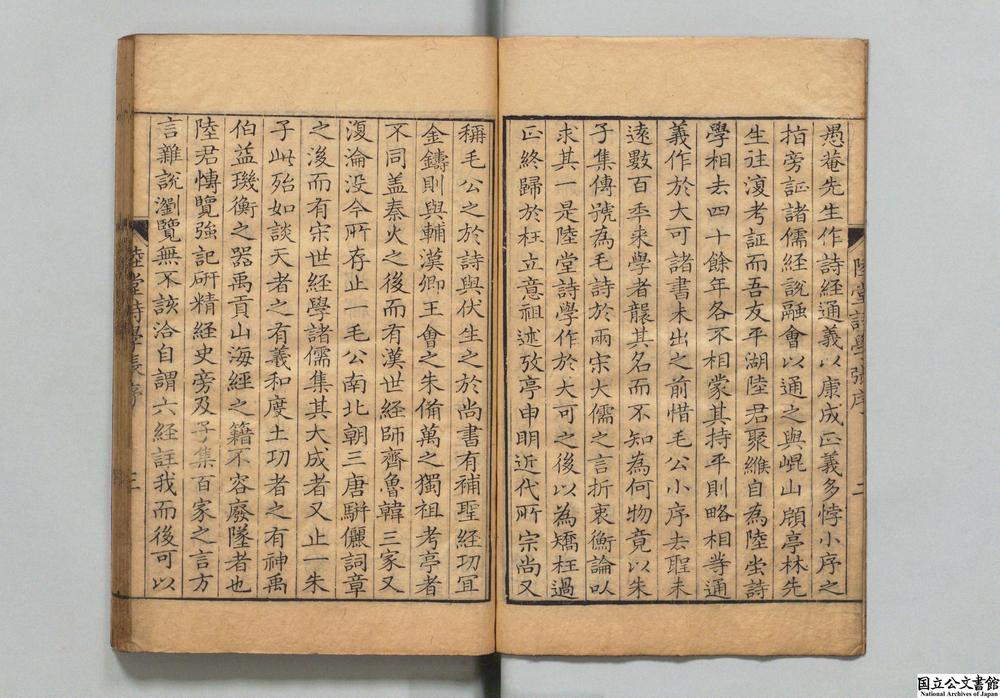 愚菴先生作詩経通義以康成正義多悖小序之
指旁証諸儒経説融會以通之與崐山顧亭林先
生往復考証而吾友平湖陸君聚緱自為陸堂詩
學相去四十餘年各不相蒙其持平則略相等通
義作於大可諸書未出之前惜毛公小序去聖未
遠數百年来學者襲其名而不知為何物竟以朱
子集傳號為毛詩於兩宋大儒之言折衷衡論以
求其一是陸堂詩學作於大可之後以為矯枉過
正終歸於枉立意祖述攷亭申明近代所宗尚又
陸堂詩學張序
二
稱毛公之於詩與伏生之於尚書有補聖経功冝
金鑄則與輔漢卿王會之朱備萬之獨祖考亭者
不同盖秦火之後而有漢世経師齊魯韓三家又
復淪没今所存止一毛公南北朝三唐駢儷詞章
之後而有宋世経學諸儒集其大成者又止一朱
子此殆如談天者之有羲和度土功者之有神禹
伯益璣衡之器禹貢山海經之籍不容廢墜者也
陸君慱覽強記研精経史旁及子集百家之言方
言雜説瀏覽無不該洽自謂六経註我而後可以
陸堂詩學張序
三
国立公文書館
National Archives of Japan